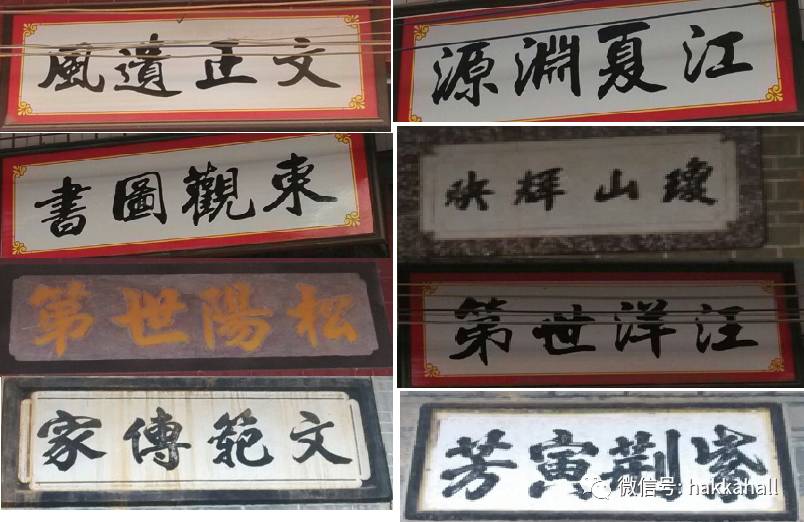 文正遺風
江夏淵源
東觀圖書
瓊山輝映
松陽世第
汪洋世第
文範傳家
紫荆寅芳
微信号: hakkahall